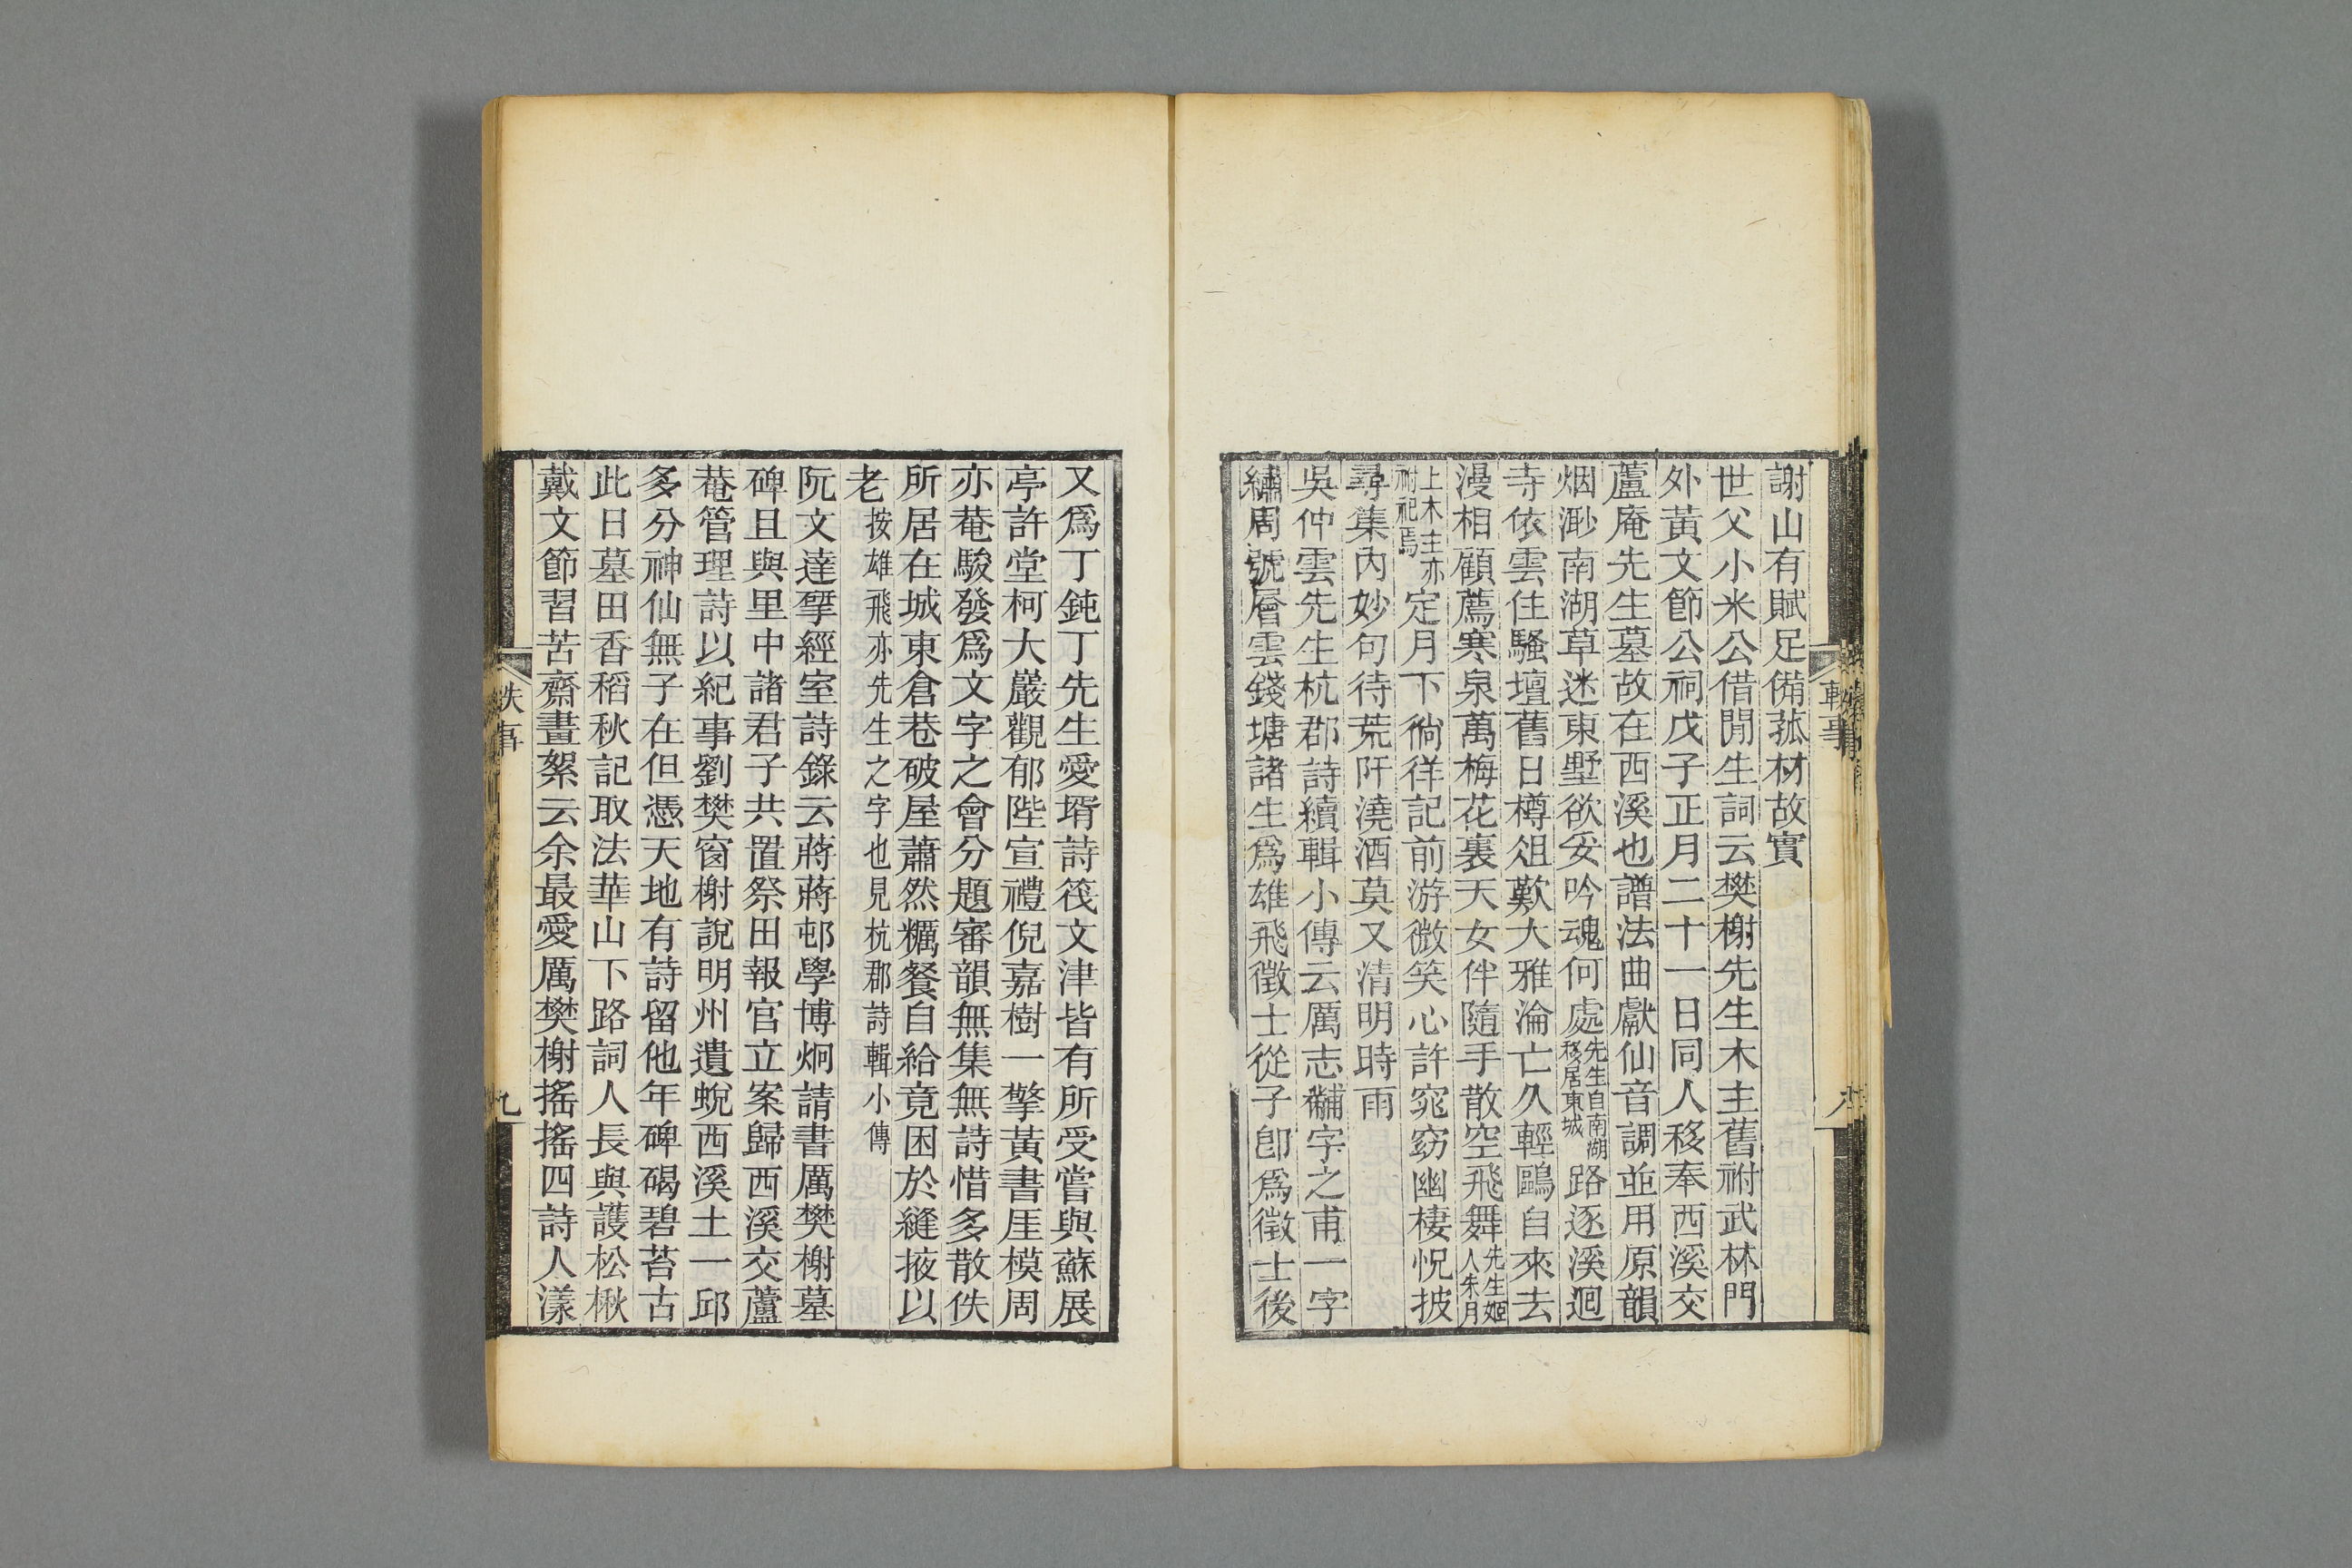 謝山有賦足備菰材故實
世父小米公借閒生詞云樊榭先生木主舊祔武林門
外黃文節公祠戊子正月二十一日同人移奉西溪交
蘆庵先生墓故在西溪也譜法曲獻仙音調並用原韻
烟渺南湖草迷東墅欲妥吟魂何處先生自南湖移居東城路逐溪迴
寺依雲住騷壇舊日樽俎歎大雅淪亡久輕鷗自來去
漫相顧薦寒泉萬梅花裏天女伴隨手散空飛舞先生姬人朱月
上木主亦祔祀焉定月下徜徉記前游微笑心許窕窈幽棲怳披
尋集內妙句待荒阡澆酒莫又清明時雨
吳仲雲先生杭郡詩續輯小傳云厲志黼字之甫一字
繡周號層雲錢塘諸生爲雄飛徵士從子卽爲徵士後
又爲丁鈍丁先生愛壻詩筏文津皆有所受嘗與蘇展
亭許堂柯大嚴觀郁陛宣禮倪嘉樹一擎黃書厓模周
亦菴駿發爲文字之會分題審韻無集無詩惜多散佚
所居在城東倉巷破屋蕭然糲餐自給竟困於縫掖以
老按雄飛亦先生之字也見杭郡詩輯小傳
阮文達揅經室詩錄云蔣蔣邨學博炯請書厲樊榭墓
碑且與里中諸君子共置祭田報官立案歸西溪交蘆
菴管理詩以紀事劉樊窗榭說明州遺蛻西溪土一邱
多分神仙無子在但憑天地有詩留他年碑碣碧苔古
此日墓田香稻秋記取法華山下路詞人長與護松楸
戴文節習苦齋畫絮云余最愛厲樊榭搖搖四詩人漾
軼事
八
軼事
九